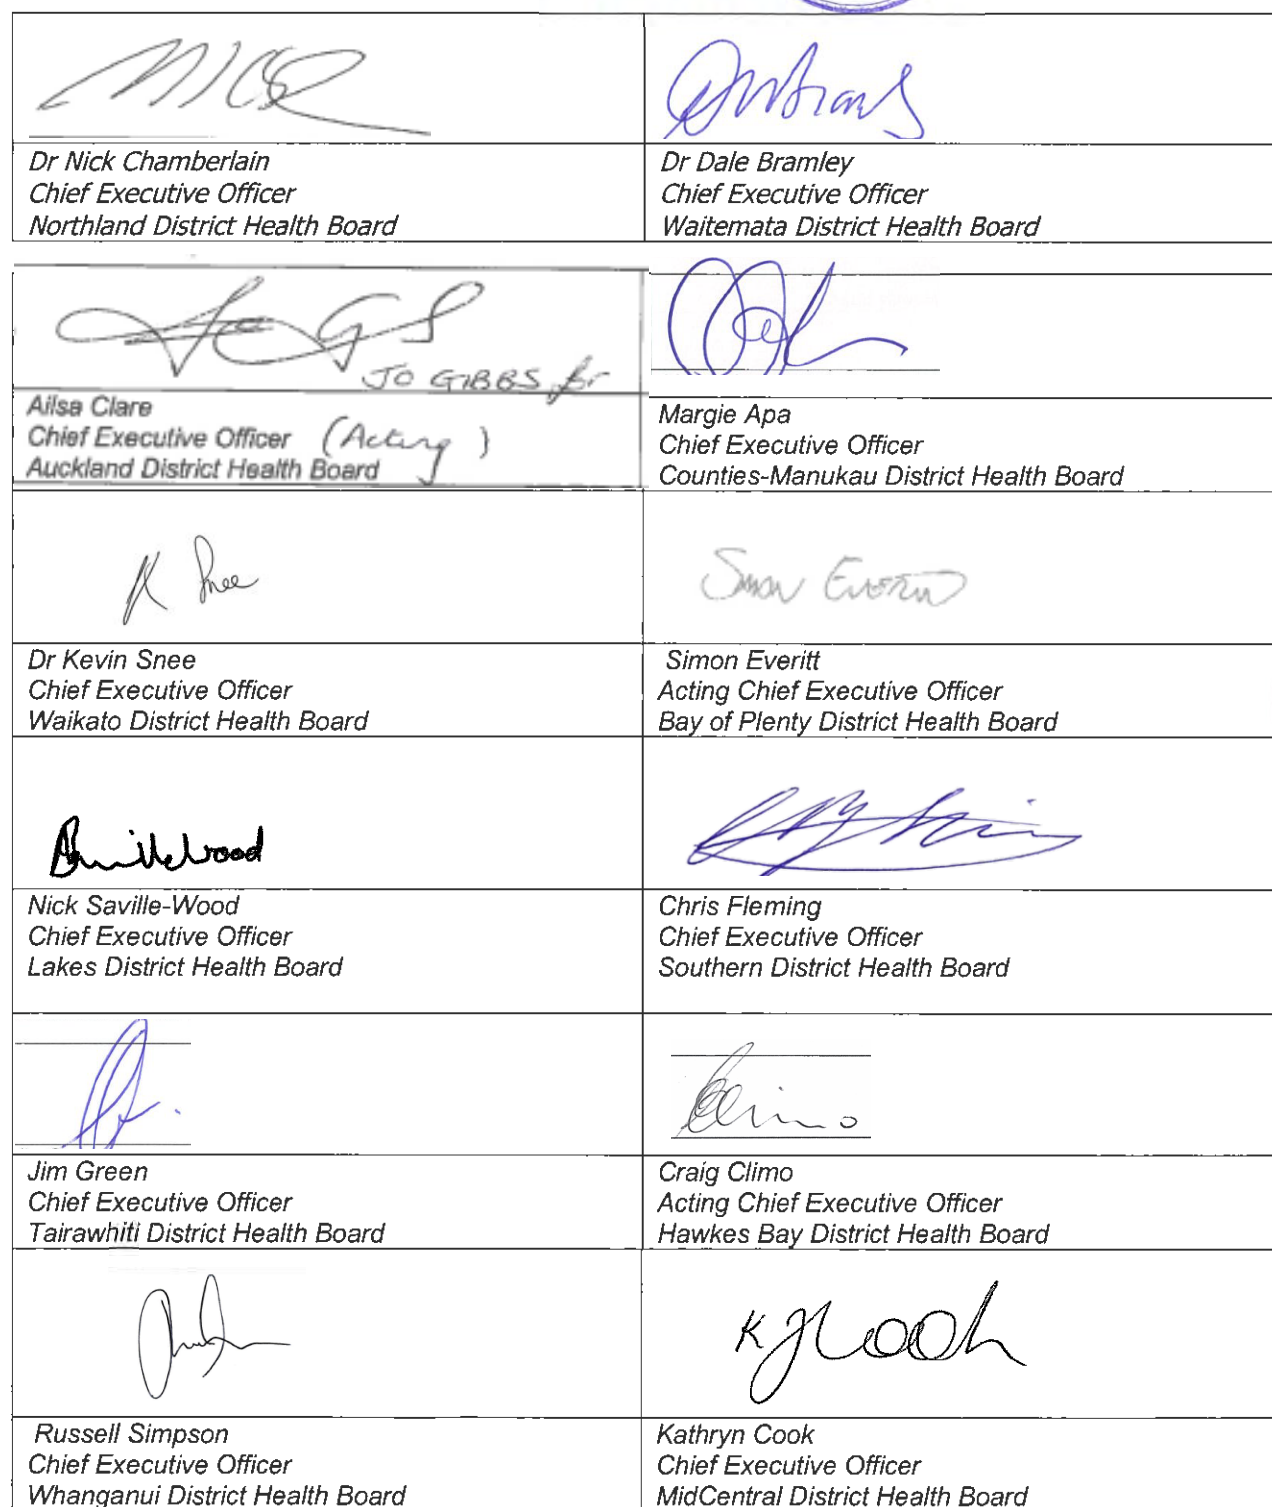 Dr Nick Chamberlain
Chief Executive Officer
Northland District Health Board
Dr Dale Bramley
Chief Executive Officer
Waitemata District Health Board
JO GIBBS for
Ailsa Clare
Chief Executive Officer (Acting)
Auckland District Health Board
Margie Apa
Chief Executive Officer
Counties-Manukau District Health Board
K Snee
Simon Everitt
Dr Kevin Snee
Chief Executive Officer
Waikato District Health Board
Simon Everitt
Acting Chief Executive Officer
Bay of Plenty District Health Board
Nick Saville-Wood
Chief Executive Officer
Lakes District Health Board
Chris Fleming
Chief Executive Officer
Southern District Health Board
Jim Green
Chief Executive Officer
Tairawhiti District Health Board
Craig Climo
Acting Chief Executive Officer
Hawkes Bay District Health Board
K J Cook
Russell Simpson
Chief Executive Officer
Whanganui District Health Board
Kathryn Cook
Chief Executive Officer
MidCentral District Health Board